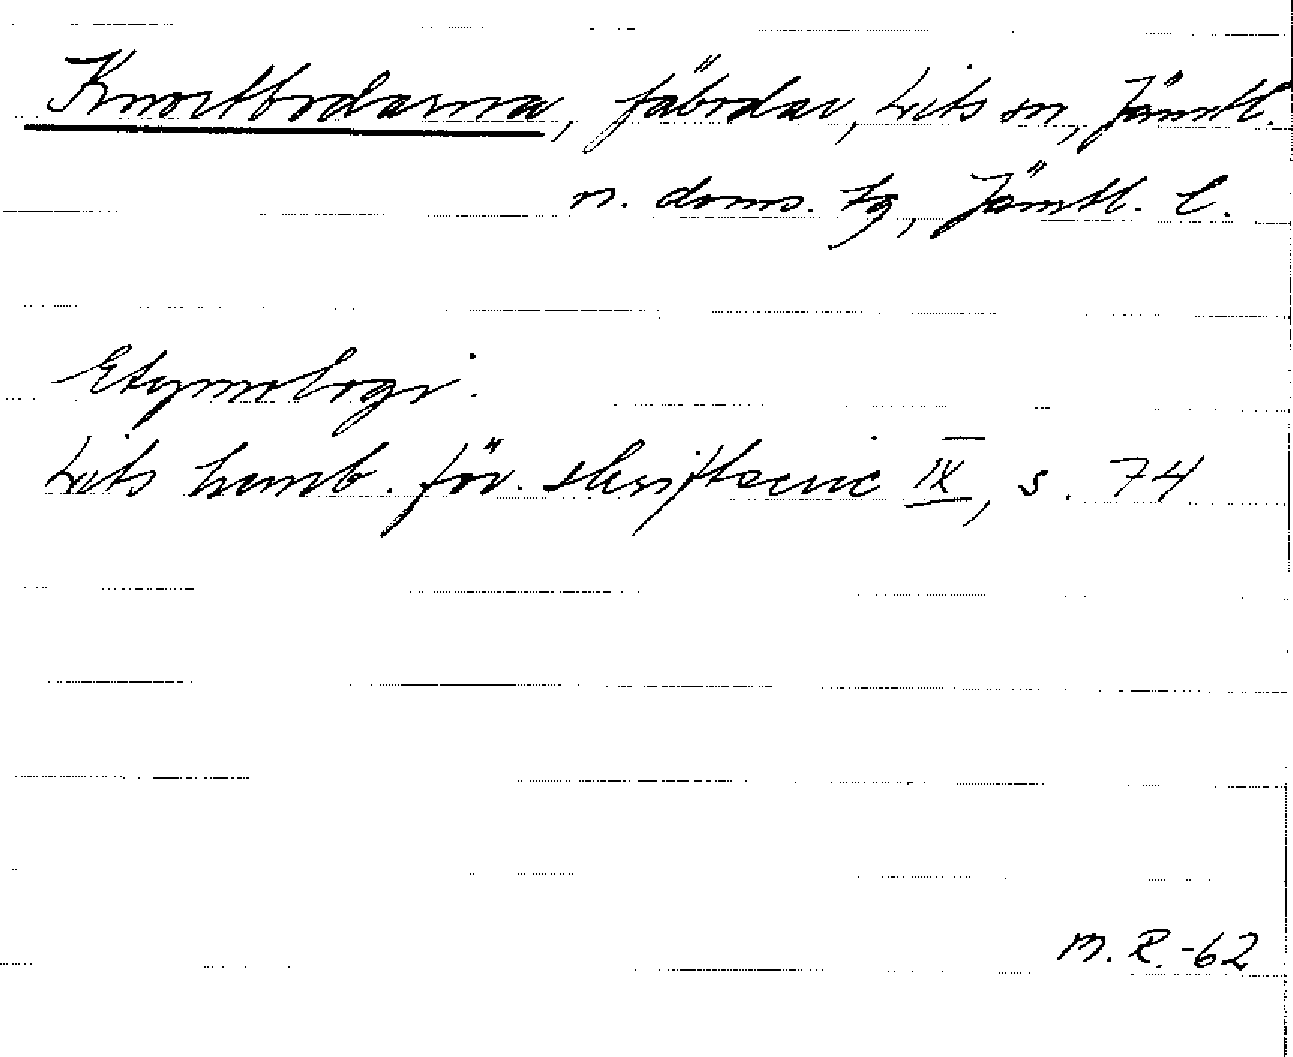 Knortbodarna, fäbodar, Lits sn, Jämtl.
n. doms. tg, Jämtl. l.
Etymologi.
Lits hemb. för. skriftserie IX, s. 74
M. R. -62